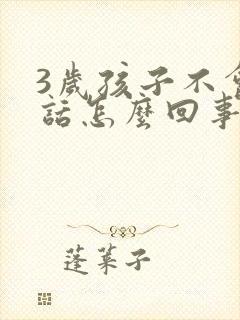 3歲孩子不會
話怎麼回事
蓬萊子